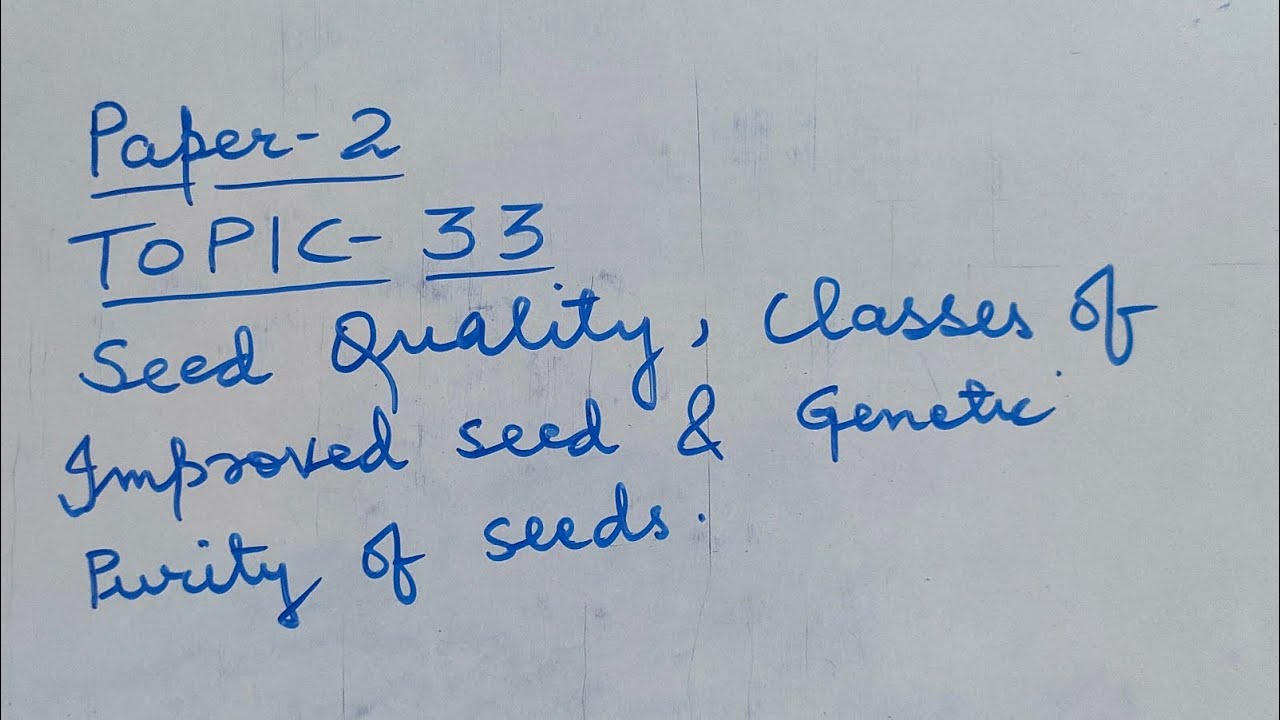 Paper-2
TOPIC-33
Seed Quality, Classes of
Improved seed & Genetic
Purity of seeds.